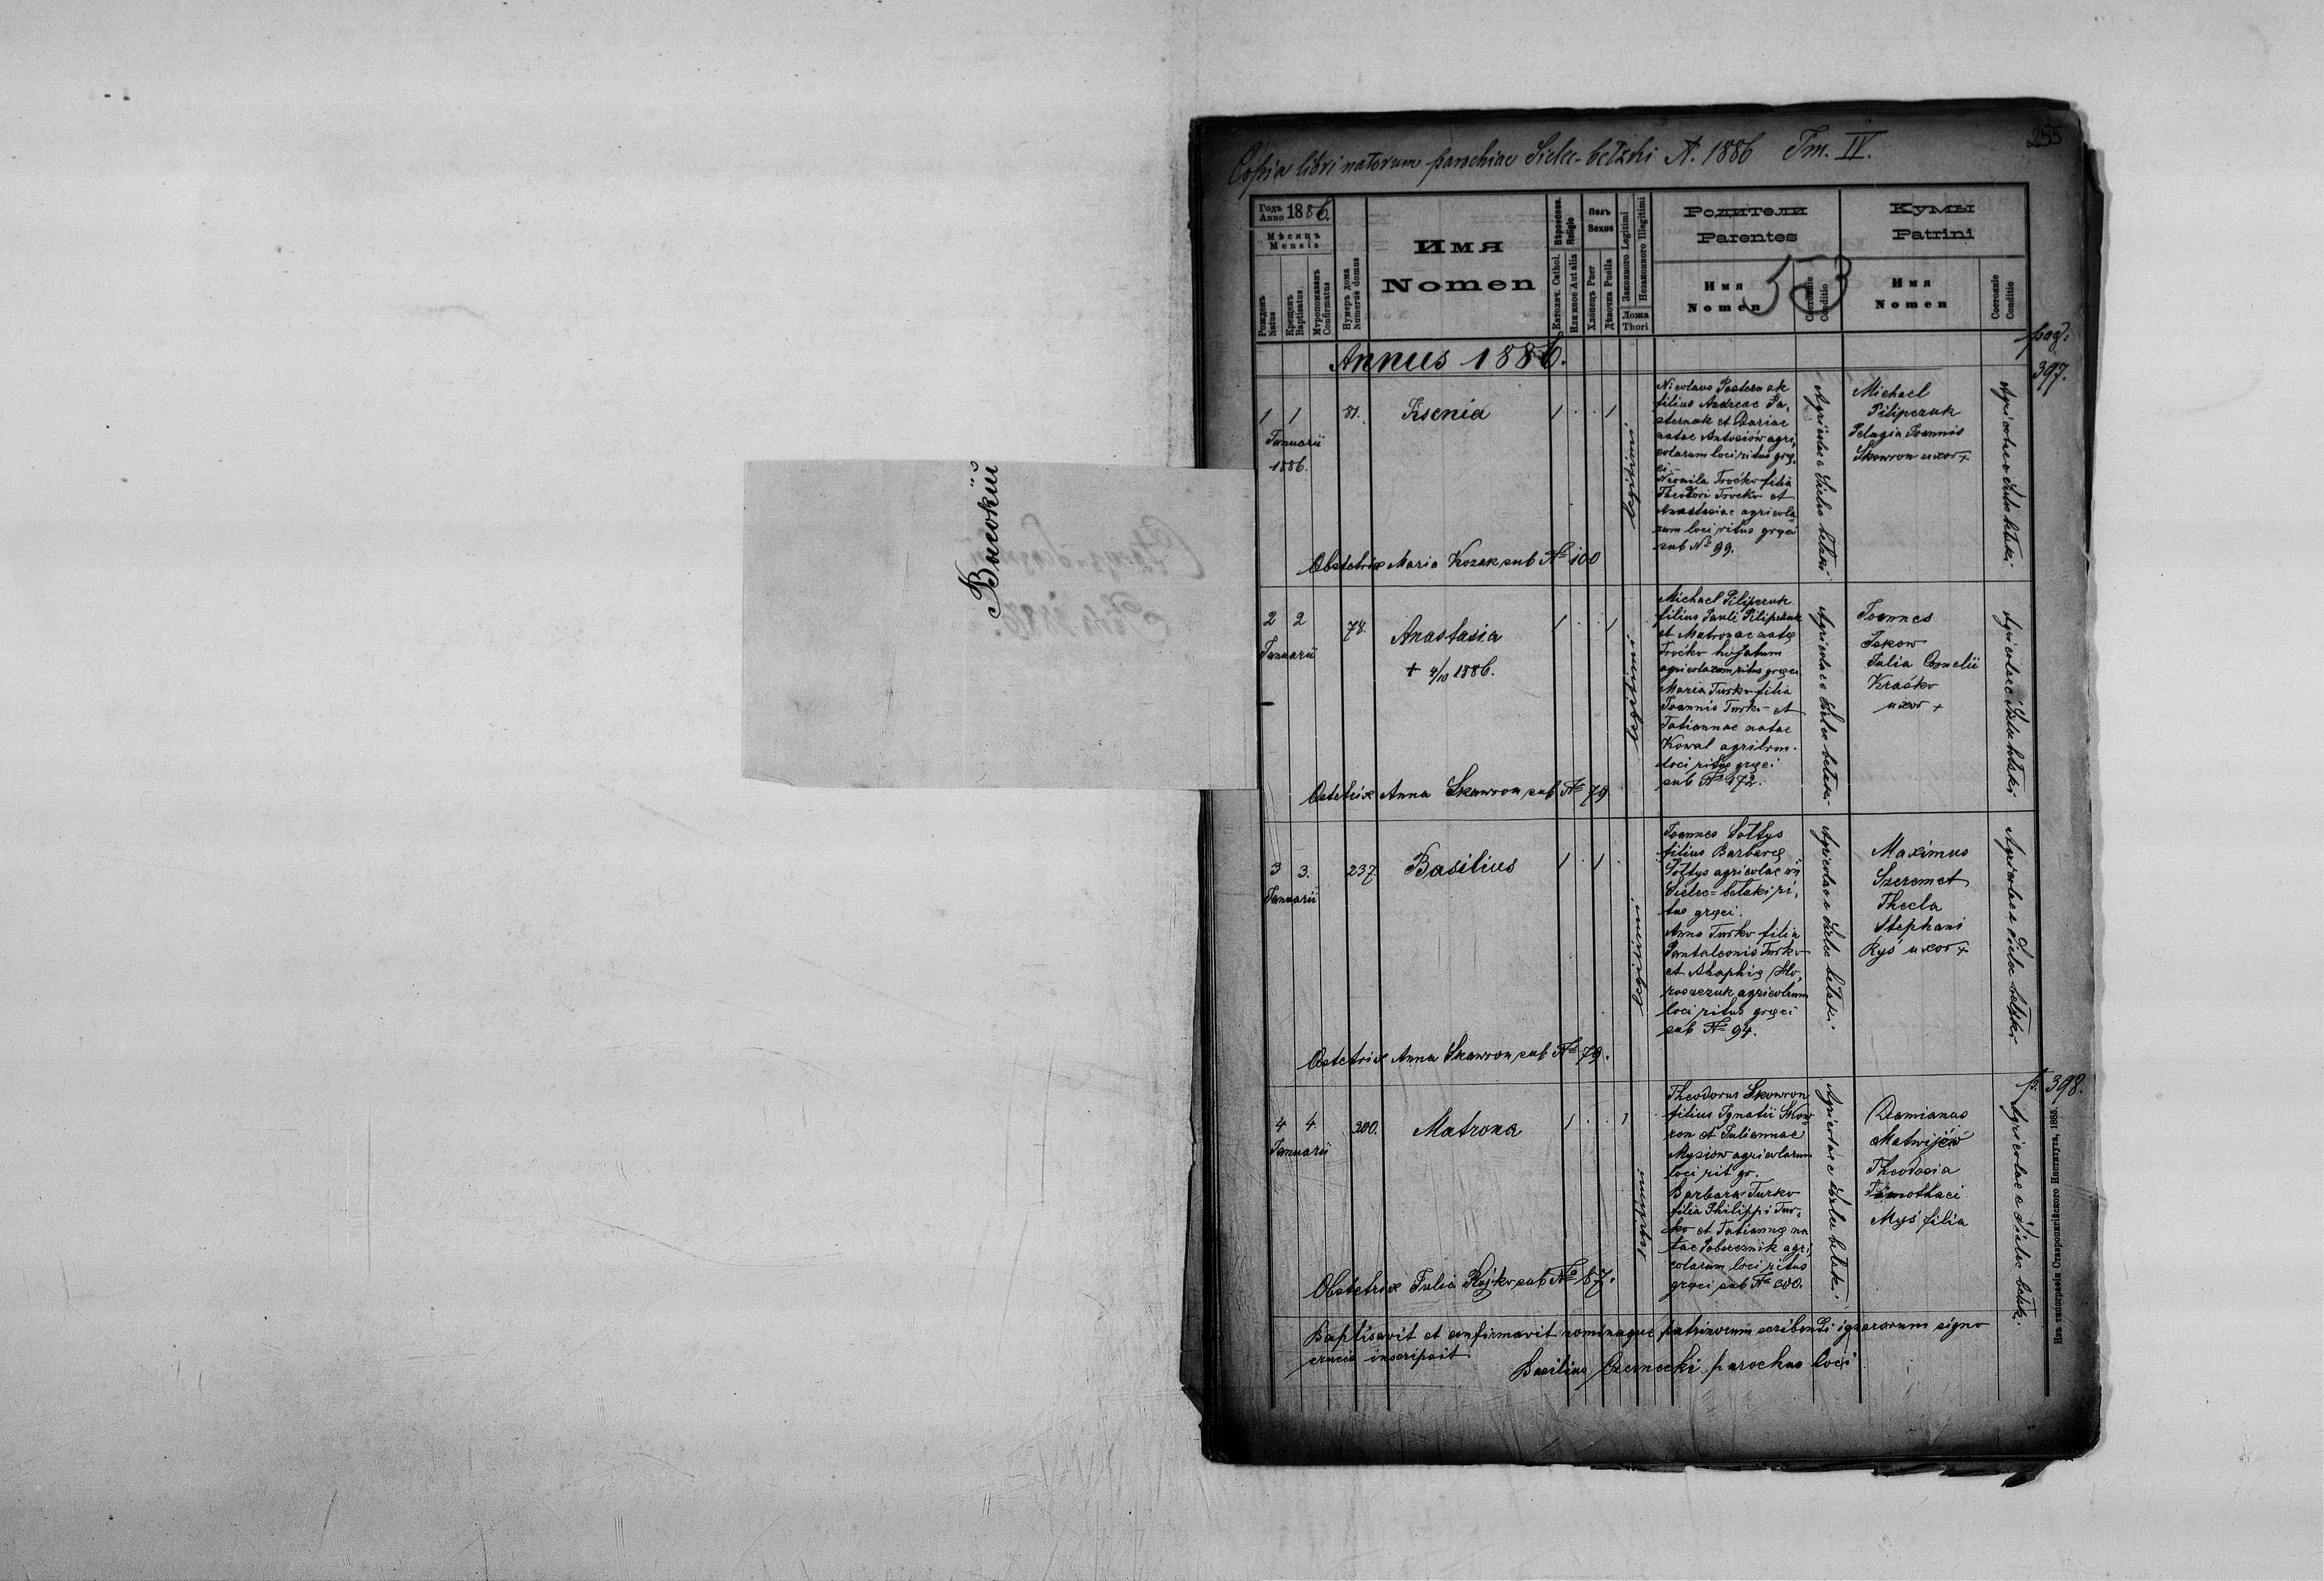 Высокий
255
Copia libri natorum parochiae Sielec-bełzki A. 1886 Tm. IV.
Годъ Anno 1886.
Мѣсяцъ Mensis
Рожденъ Natus
Крещенъ Baptisatus
Мѵропомазанъ Confirmatus
Нумеръ дома Numerus domus
Имя Nomen
Вѣроиспов. Religio
Католич. Cathol.
Или иное Aut alia
Полъ Sexus
Хлопецъ Puer
Дѣвочка Puella
Законного Legitimi
Незаконного Illegitimi
Ложа Thori
Родители Parentes
Имя Nomen
Состояніе Conditio
53
Кумы Patrini
Имя Nomen
Состояніе Conditio
pag:
397.
Annus 1886.
1 1 Januarii 1886.
81.
Ksenia
1 . . 1
legitimi
Nicolaus Pasternak
filius Andreae Pa,
sternak et Dariae
natae Antosiów agri,
colarum loci ritus gręci
Theodori Trocko et
Anastasiae agricola
rum loci ritus gręci
sub No 99.
Agricolae e Sielec bełzki
Michael
Pilipczuk
Pelagia Joannis
Skowron uxor +
Agricolae e Sielec bełzki
Obstetrix Maria Kozak sub No 100
2 2 Januarii
78.
Anastasia
+ 4/10 1886.
1 . . 1
legitimi
Michael Pilipczuk
filius Pauli Pilipczuk
et Matronae natę
Trocko hujatum
agricolarum ritus gręci
Maria Turko filia
Joannis Turko et
Tatiannae natae
Kowal
loci ritus gręci
sub No 172.
Agricolae e Sielec bełzki
Joannes
Julia Cornelii
Kraśko
uxor +
Agricolae e Sielec bełzki
Obstetrix Anna Skowron sub No 79
3 3. Januarii
237.
Basilius
1 . 1 .
legitimi
Joannes Sołtys
filius Barbarę
Sołtys agricolae in
Sielec=bełzki ri,
tus gręci.
Anna Turko filia
Pantaleonis Turko
et Ahaphię Ho,
roszczuk agricolarum
loci ritus gręci
sub No 94.
Agricolae e Sielec bełzki
Maximus
Szeremet
Thecla
Stephani
Ryś uxor +
Agricolae e Sielec bełzki
Obstetrix Anna Skowron sub No 79.
p. 398.
4 4. Januarii
200.
Matrona
1 . . 1
legitimi
Theodorus Skowron
filius Ignatii Skow
ron et Juliannae
Mysiów agricolarum
loci rit gr.
Barbara Turko
filia Philippi Tur,
ko et Tatiannę na
tae Pobereznik agri
colarum loci ritus
gręci sub No 200.
Agricolae e Sielec bełzki
Damianus
Matwijów
Theodosia
Timothaei
Myś filia
Agricolae e Sielec bełzki
Obstetrix Julia Rojko sub No 87.
Baptisavit et confirmavit nominaque patrinorum scribendi ignarorum signo
crucis inscripsit
Basilius Czernecki parochus loci
Изъ типографіи Ставропигійского Института, 1885.